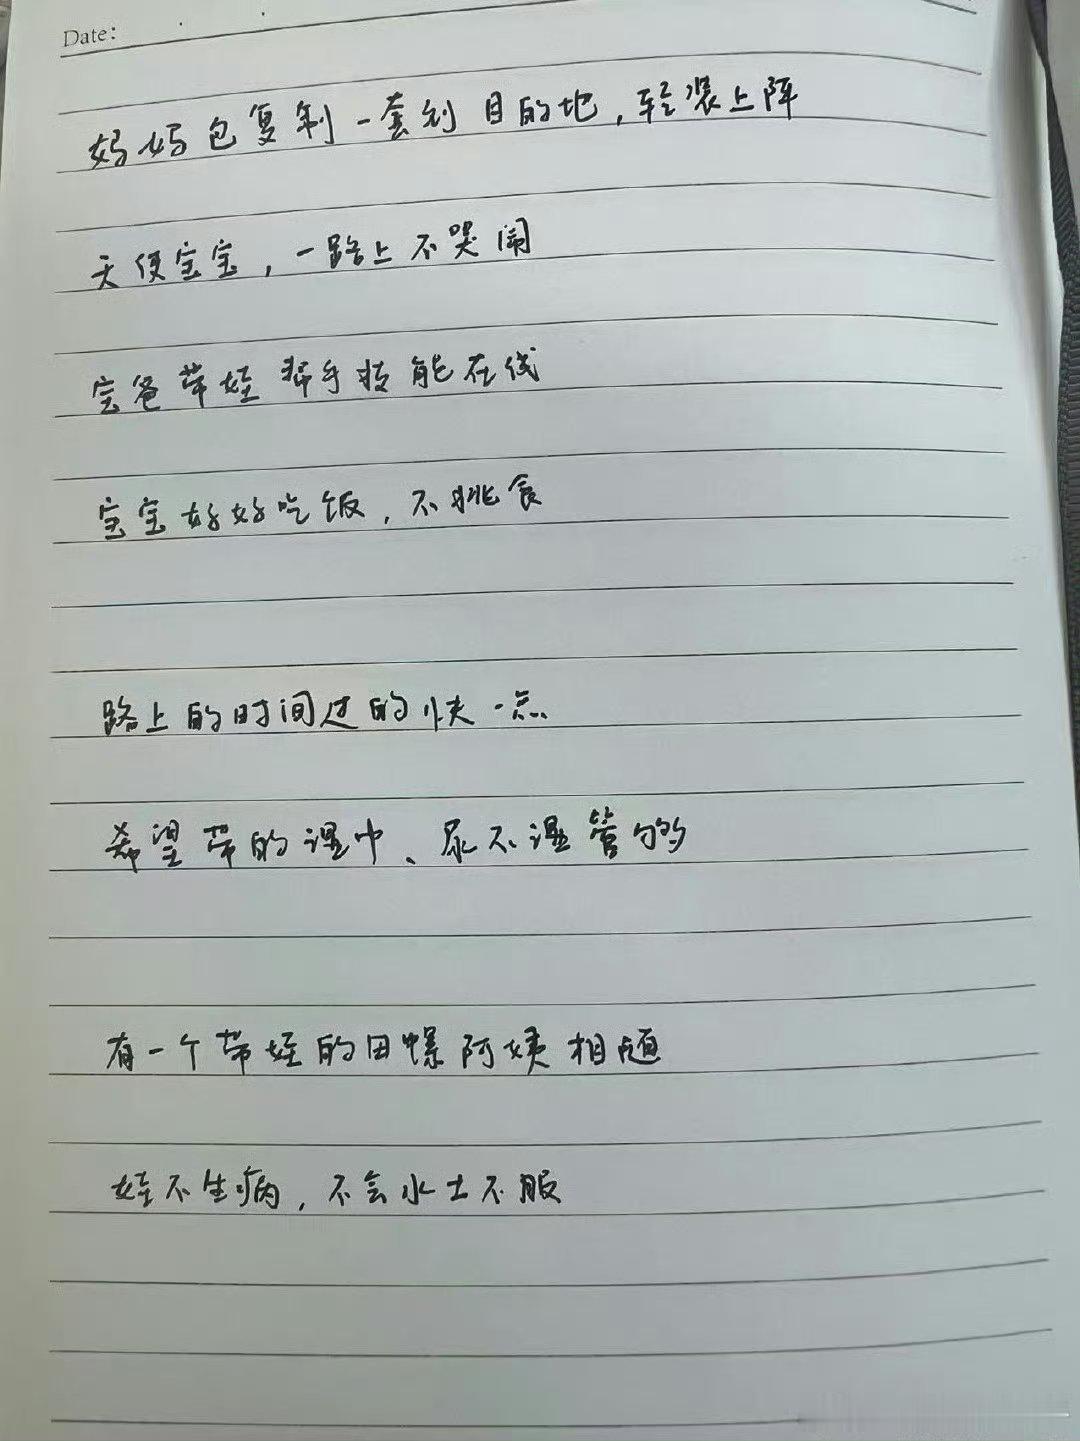 Date:
妈妈包复制一套到目的地，轻装上阵
天使宝宝，一路上不哭闹
宝爸带娃帮手技能在线
宝宝好好吃饭，不挑食
路上的时间过的快一点
希望带的湿巾、尿不湿管够
有一个带娃的田螺阿姨相随
娃不生病，不会水土不服